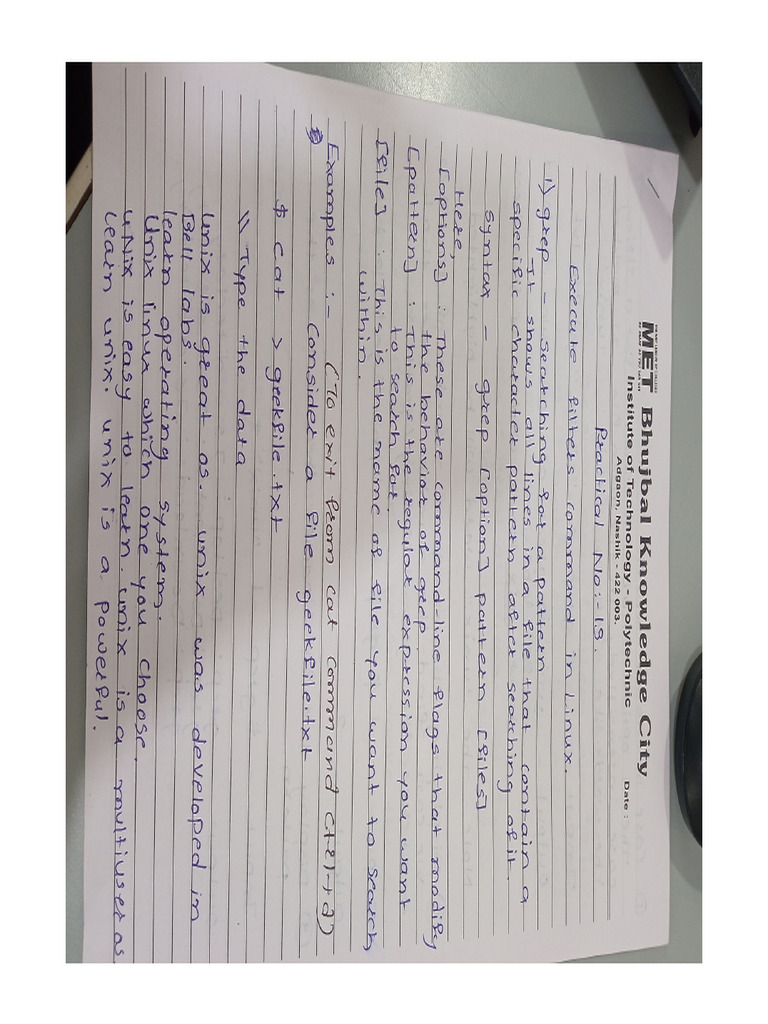 MET Bhujbal Knowledge City
Institute of Technology - Polytechnic
Adgaon, Nashik - 422 003.
Date :
Practical No:- 18.
Execute filters command in Linux.
1) grep - Searching for a pattern
It shows all lines in a file that contain a
specific character pattern after searching of it.
Syntax - grep [option] pattern [files]
Here,
[options] : These are command-line flags that modify
the behavior of grep.
[pattern] : This is the regular expression you want
to search for.
[file] : This is the name of file you want to search
within.
Examples :- (To exit from cat command ctrl+d)
Consider a file geekfile.txt
$ cat > geekfile.txt
\\ Type the data
unix is great os. unix was developed in
Bell labs.
learn operating system.
Unix linux which one you choose.
uNix is easy to learn. unix is a multiuser os
Learn unix. unix is a powerful.